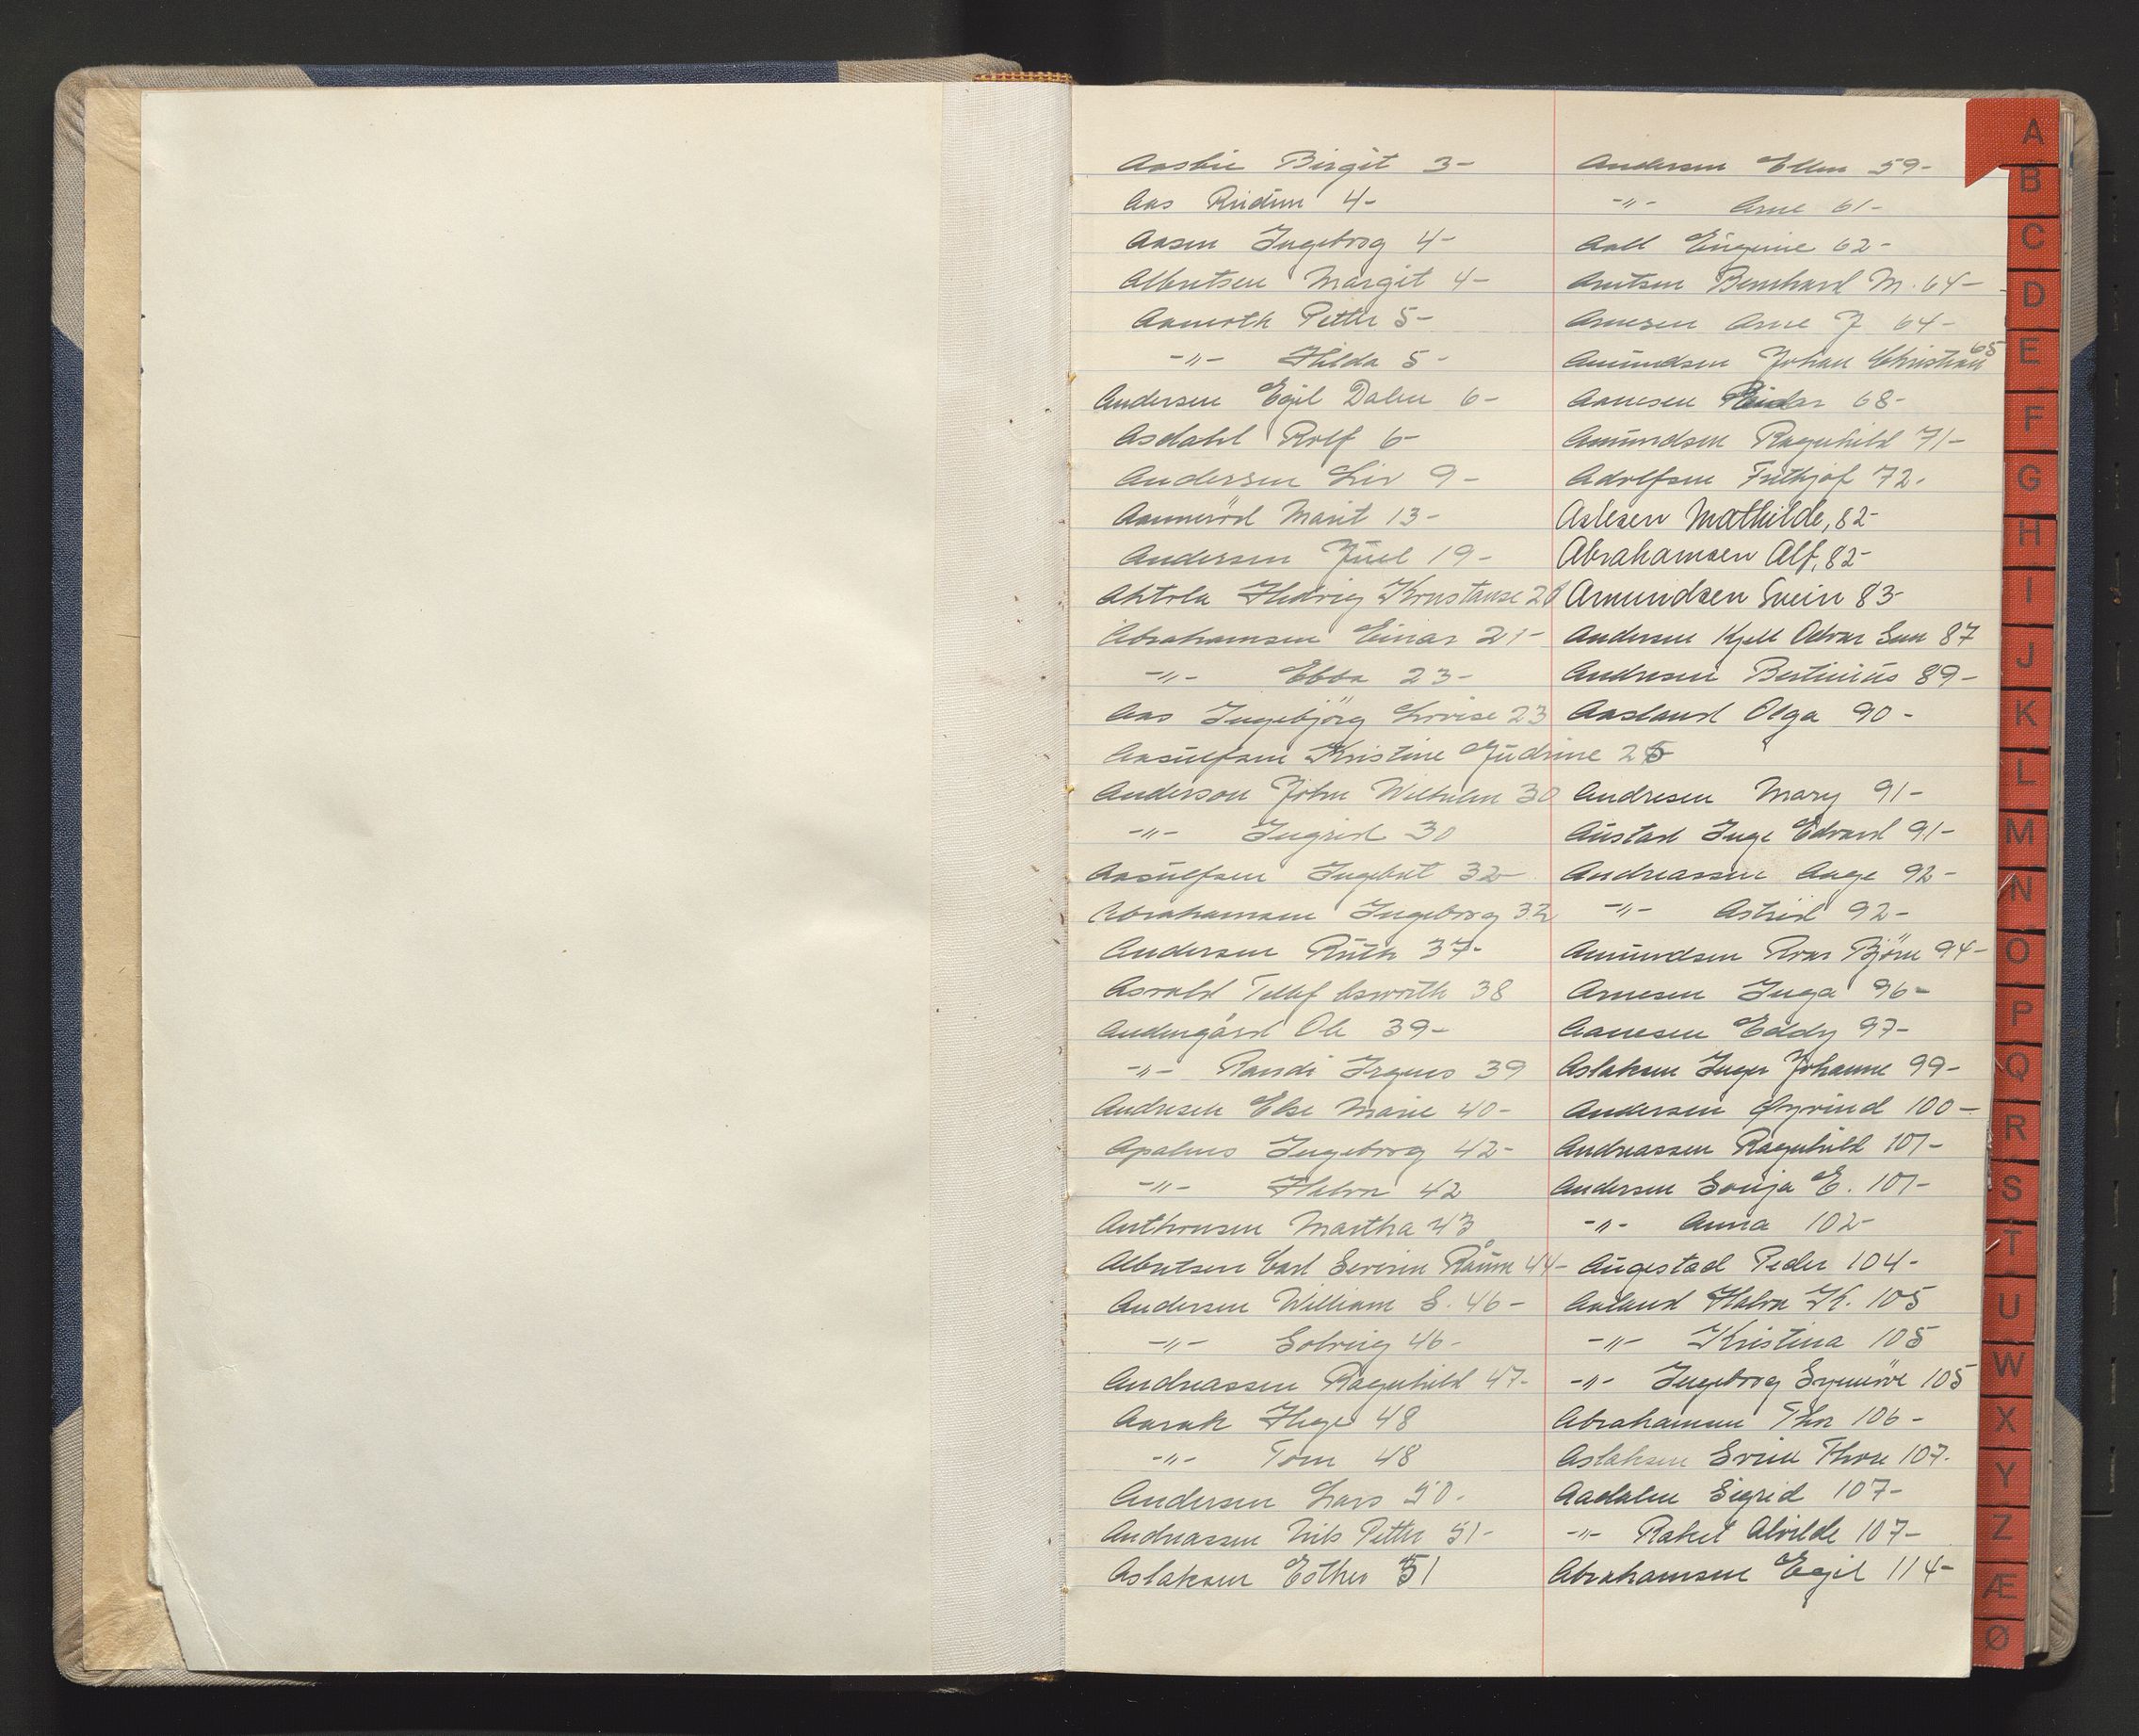 Aasbie Birgit 3-
Aas Reidun 4-
Aasen Ingeborg 4-
Albertsen Margit 4-
Petter 5-
-"- Hilda 5-
Andersen Egil Dalen 6-
Asdahl Rolf 6-
Andersen Liv 9-
Aanneröd Marit 13-
Andersen Juel 19-
Ahtola Hedvig Konstanse 20
Abrahamsen Einar 21-
-"- Ebba 23-
Aas Ingebjörg Lovise 23
Aasulfsen Kristine Judine 25
Anderson John Wilhelm 30
-"- Ingrid 30
Aasulfsen Ingebret 32-
Abrahamsen Ingeborg 32
Andersen Ruth 37-
Asvald Tellef 38
Andengård Ole 39-
-"- Randi 39
Andresen Else Marie 40-
Apalnes Ingeborg 42-
-"- Halvor 42
Anthonsen Martha 43
Albertsen Carl Severin 44-
Andersen William S. 46-
-"- Solveig 46-
Andreassen Ragnhild 47-
Aarak Hege 48
-"- Tom 48
Andersen Lars 50-
Andreassen Nils Petter 51-
Aslaksen Esther 51
Andersen Ellen 59-
-"- Arne 61-
Aall Eugenie 62-
Arntsen Bernhard M. 64-
Arnesen Arne J 64-
Amundsen Johan Christian 65
Aanesen Reidar 68-
Amundsen Ragnhild 71-
Adolfsen Frithjof 72-
Aslesen Mathilde, 82-
Abrahamsen Alf, 82-
Amundsen Svein 83-
Andersen Kjell Odvar Sem 87
Andresen Bertinius 89-
Aasland Olga 90-
Andresen Mary 91-
Austad Inge Edvard 91-
Andreassen Aage 92-
-"- Astrid 92-
Amundsen Roar Björn 94-
Arnesen Inga 96-
Aanesen Eddy 97-
Aslaksen Inger Johanne 99-
Andersen Øyvind 100-
Andreassen Ragnhild 101-
Andersen Sonja E. 101-
-"- Anna 102-
Augestad Peder 104-
Aaland Halvor K. 105
-"- Kristina 105
-"- Ingeborg Synnöve 105
Abrahamsen Thor 106-
Aslaksen Svein Thore 107-
Aadalen Sigrid 107-
-"- Rakel Alvilde 107-
Abrahamsen Egil 114-
A
B
C
D
E
F
G
H
I
J
K
L
M
N
O
P
Q
R
S
T
U
W
X
Y
Z
Æ
Ø